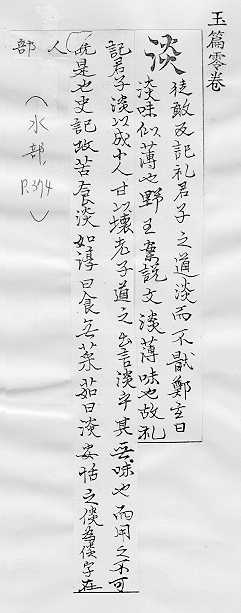 玉篇零卷
淡
徒敢反記礼君子之道淡而不猒鄭玄曰
淡味似薄也野王案說文淡薄味也故礼
記君子淡以成小人甘以壞老子道之出言淡乎其无味也而用之不可
既是也史記攻苦食淡如淳曰食无菜茹曰淡安恬之淡為倓字在
人部
(水部 P.374)